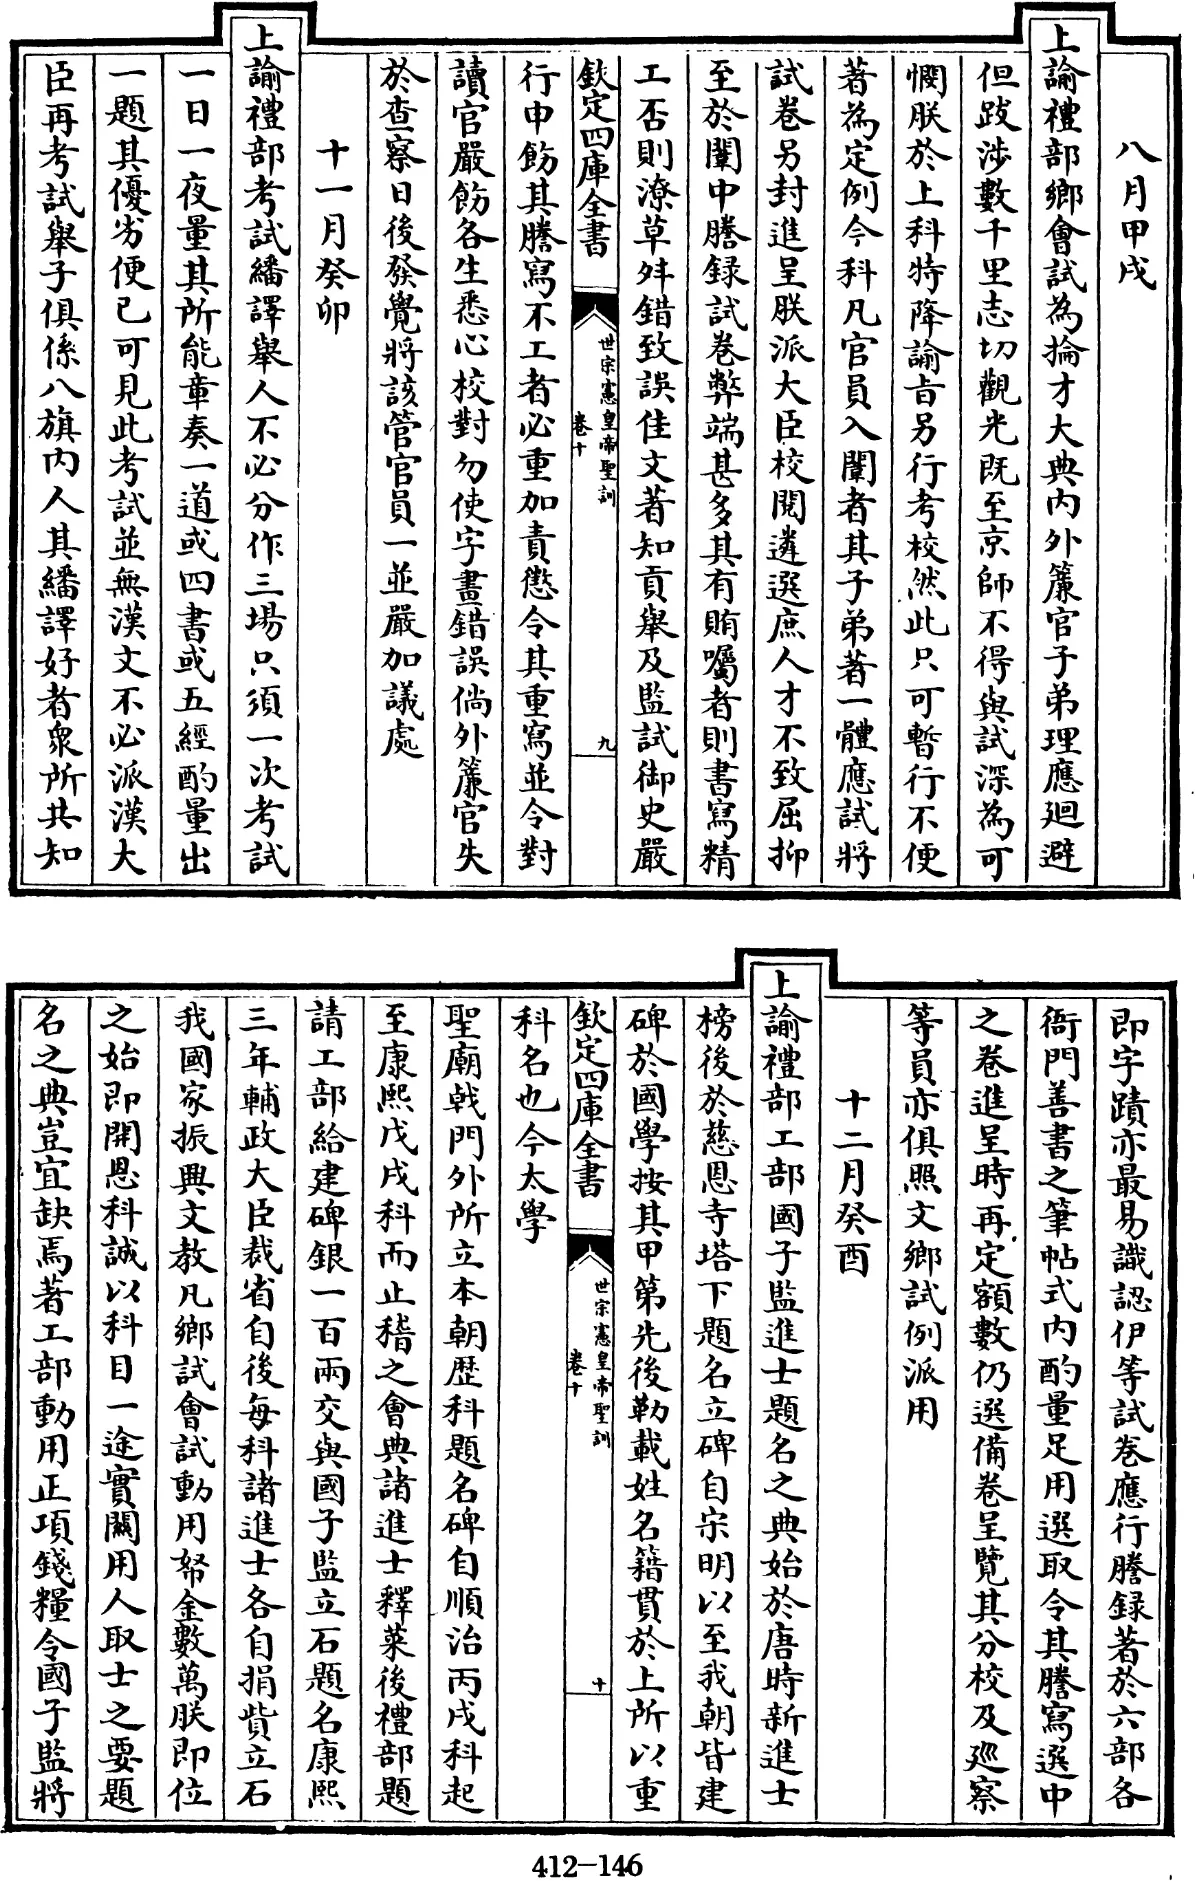 八月甲戌
上諭禮部鄉會試為掄才大典内外簾官子弟理應廻避
但跋涉數千里志切觀光旣至京師不得與試深為可
憫朕於上科特降諭旨另行考校然此只可暫行不便
著為定例今科凡官員入闈者其子弟著一體應試將
試卷另封進呈朕派大臣校閱遴選庶人才不致屈抑
至於闈中謄録試卷弊端甚多其有賄囑者則書寫精
工否則潦草舛錯致誤佳文著知貢舉及監試御史嚴
欽定四庫全書
世宗憲皇帝聖訓
卷十
九
行申飭其謄寫不工者必重加責懲令其重寫並令對
讀官嚴飭各生悉心校對勿使字畫錯誤倘外簾官失
於查察日後發覺將該管官員一並嚴加議處
十一月癸卯
上諭禮部考試繙譯舉人不必分作三場只須一次考試
一日一夜量其所能章奏一道或四書或五經酌量出
一題其優劣便已可見此考試並無漢文不必派漢大
臣再考試舉子俱係八旗内人其繙譯好者衆所共知
即字蹟亦最易識認伊等試卷應行謄録著於六部各
衙門善書之筆帖式内酌量足用選取令其謄寫選中
之卷進呈時再定額數仍選備卷呈覽其分校及廵察
等員亦俱照文鄉試例派用
十二月癸酉
上諭禮部工部國子監進士題名之典始於唐時新進士
榜後於慈恩寺塔下題名立碑自宋明以至我朝皆建
碑於國學按其甲第先後勒載姓名籍貫於上所以重
欽定四庫全書
世宗憲皇帝聖訓
卷十
十
科名也今太學
聖廟戟門外所立本朝歷科題名碑自順治丙戌科起
至康熙戊戌科而止稽之會典諸進士釋菜後禮部題
請工部給建碑銀一百兩交與國子監立石題名康熙
三年輔政大臣裁省自後每科諸進士各自捐貲立石
我國家振興文教凡鄉試會試動用帑金數萬朕即位
之始即開恩科誠以科目一途實關用人取士之要題
名之典豈宜缺焉著工部動用正項錢糧令國子監將
412-146